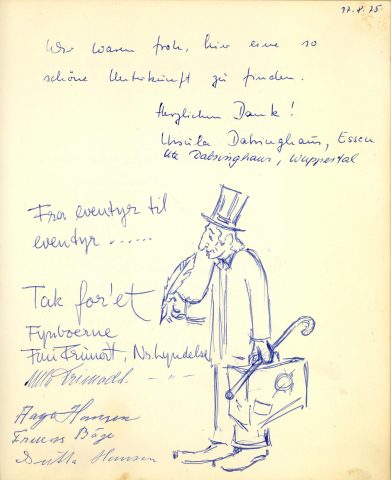 17.8.75.
Wir waren froh, hier eine so
schöne Unterkunft zu finden.
Herzlichen Dank!
Ursula Dabringhaus, Essen
Ute Dabringhaus, Wuppertal
Fra eventyr til
eventyr ......
Tak for'et
Fynboerne
Nr. Lyndelse
Aage Hansen
Hansen